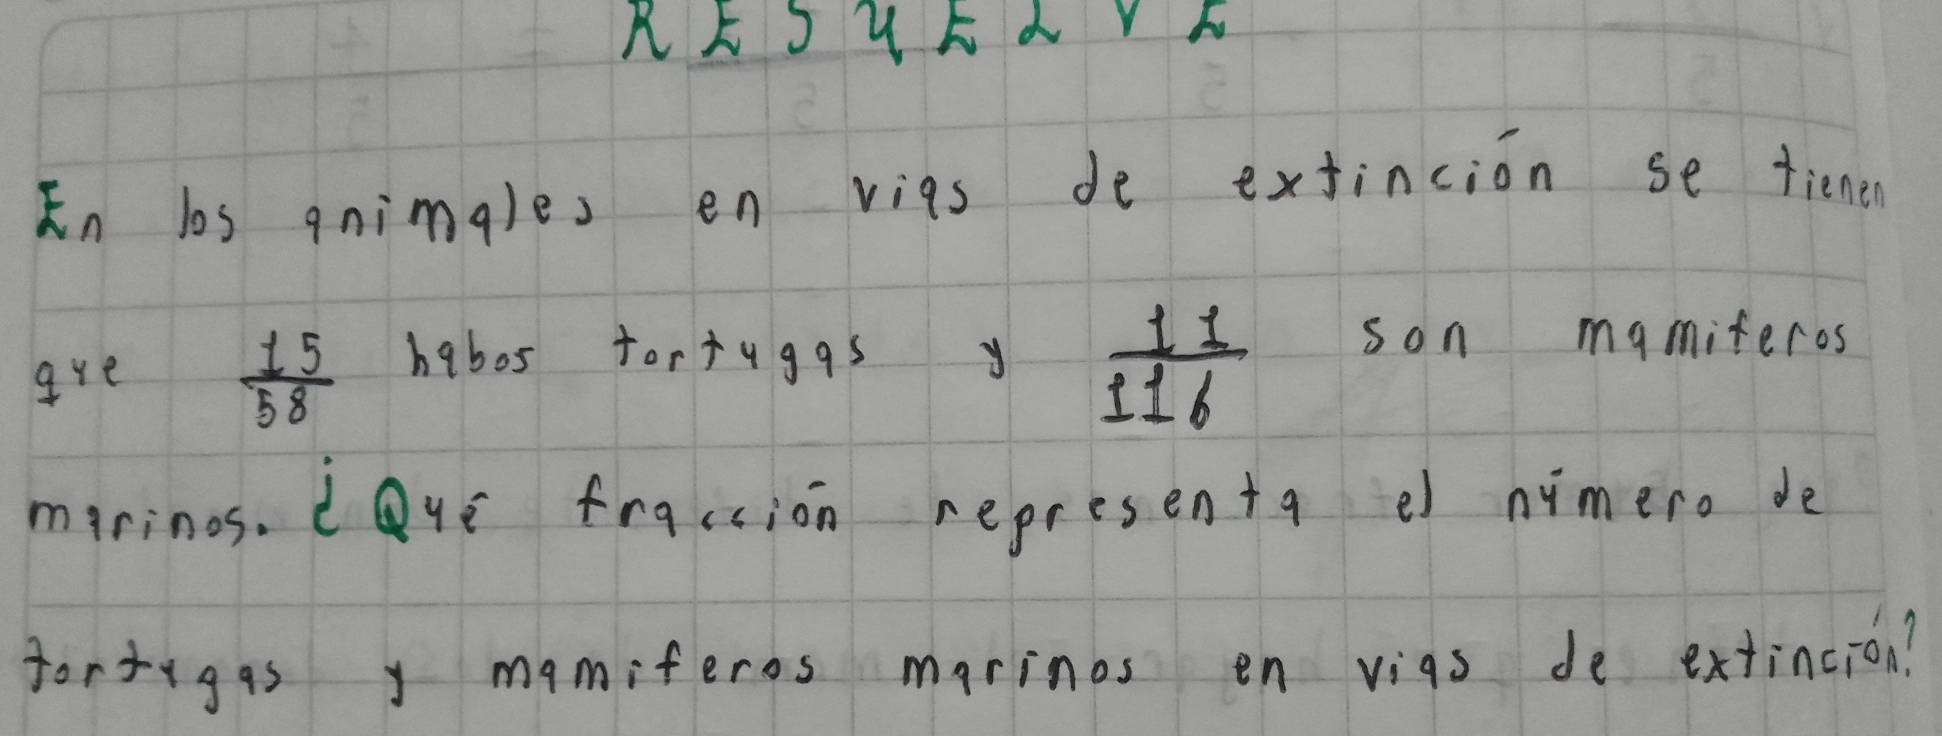 RESUELVE
En los animales en vias de extinción se tienen
que 15/58 habos tortugas y 11/116 son mamiferos
marinos. ¿Qué fracción representa el número de
tortugas y mamiferos marinos en vias de extinción?